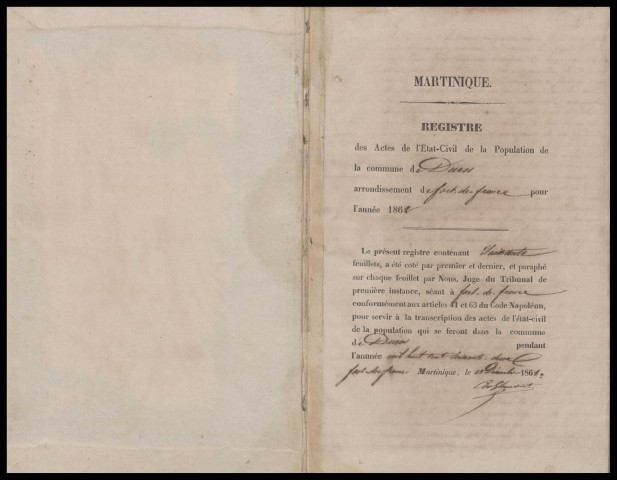 MARTINIQUE.
REGISTRE
des Actes de l'Etat-Civil de la Population de
la commune de Ducos
arrondissement de fort-de-france pour
l'année 1862
Le présent registre contenant Soixante
feuillets, a été coté par premier et dernier, et paraphé
sur chaque feuillet par Nous, Juge du Tribunal de
première instance, séant à fort-de-france
conformément aux articles 41 et 63 du Code Napoléon,
pour servir à la transcription des actes de l'état-civil
de la population qui se feront dans la commune
de Ducos pendant
l'année mil huit cent soixante-deux
fort-de-france Martinique, le Décembre 1861.